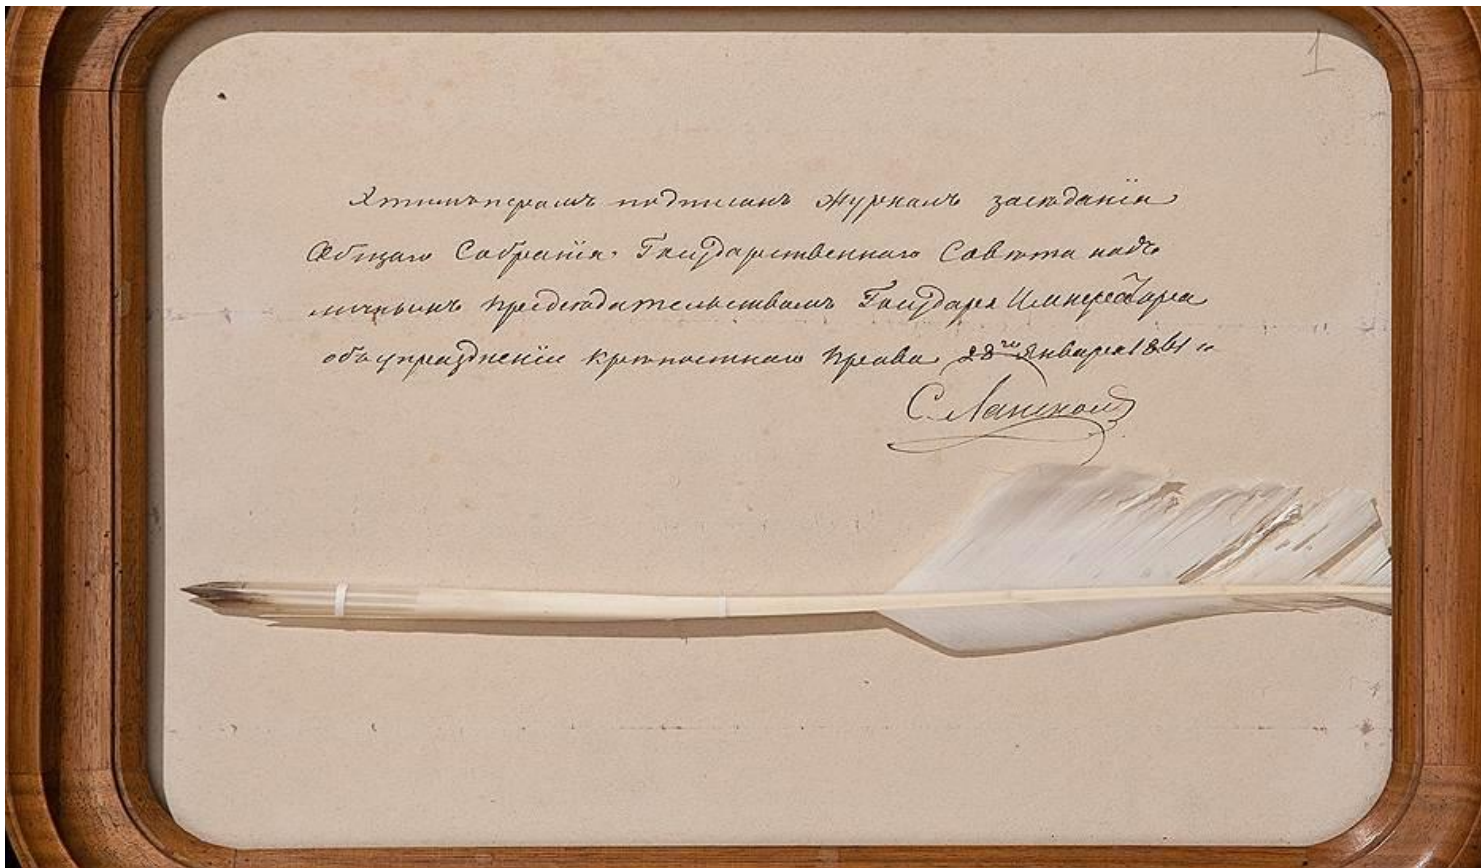 1
Этимъ перомъ подписанъ журналъ заседанія
Общаго Собранія Государственнаго Совета подъ
личнымъ председательствомъ Государя Императора
объ упраздненіи крепостнаго права 28го Января 1861 г.
С. Ланской